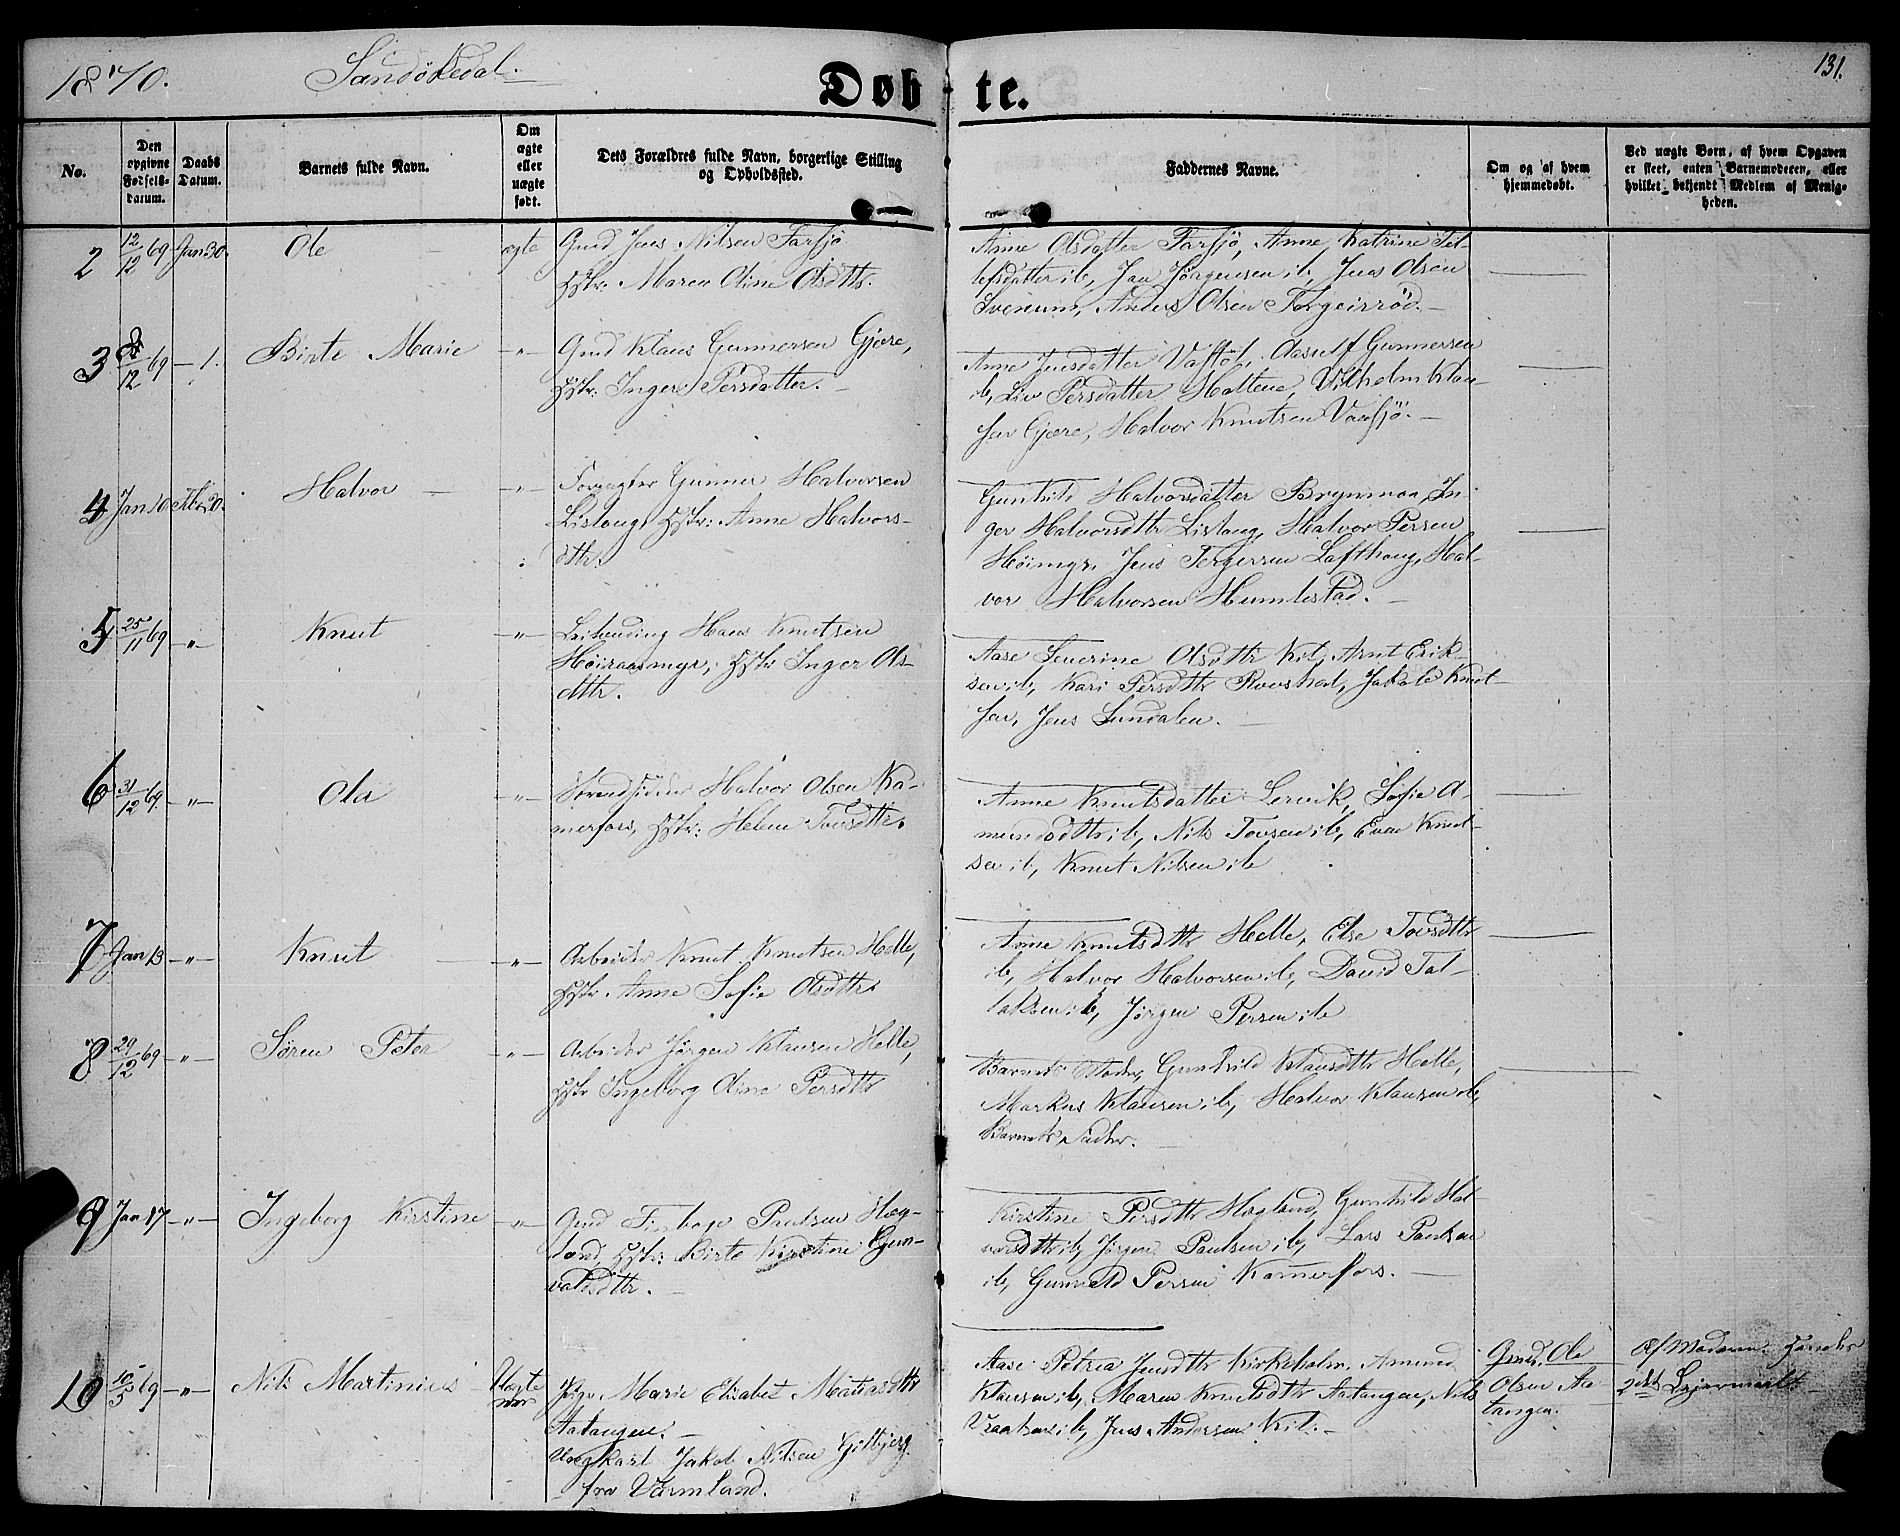 1870. Sandökedal.
Døbte.
131.
No.
Den opgivne Fødselsdatum.
Daabs Datum.
Barnets fulde Navn.
Om ægte eller uægte født.
Dets Forældres fulde Navn, borgerlige Stilling og Opholdssted.
Faddernes Navne.
Om og af hvem hjemmedøbt.
Ved uægte Børn, af hvem Opgaven er skeet, enten Barnemoderen, eller hvilket bekjendt Medlem af Menigheden.
2 12/12 69 Jan 30. Ole ægte Gmd Jens Nilsen Farsjö
Hstr. Maren Oline Olsdtr.
Anne Olsdatter Farsjö, Anne Katrine Tel-
lefsdatter ib, Jan Jørgensen ib, Jens Olsen
Svenum, Anders Olsen Torgeirröd.
3 8/12 69 — 1. Birte Marie —"— Gmd Klaus Gunnersen Gjære,
Hstr. Inger Persdatter.
Anne Jensdatter Vaftöl, Aasulf Gunnersen
ib, Liv Persdatter Holtene, Vilhelm Klau-
sen Gjære, Halvor Knutsen Vaasjö.
4 Jan 10 Febr 20. Halvor —"— Forpagter Gunner Halvorsen
Lislaug, Hstr: Anne Halvors-
dtr.
Gunhild Halvorsdatter Brynmoa, In-
ger Halvorsdtr Lislaug, Halvor Persen
Höimyr, Jens Tergersen Lofthaug, Hal-
vor Halvorsen Humlestad.
5 25/11 69 —"— Knut —"— Leilending Hans Knutsen
Höiraasmyr, Hstr Inger Ols-
dtr.
Aase Severine Olsdtr Kil, Arnt Erik-
sen ib, Kari Persdtr Rovshol, Jakob Knut-
sen, Jens Sundalen.
6 31/12 69. —"— Ola —"— Strandsidder Halvor Olsen Ka-
merfors, Hstr: Helene Tovsdtr.
Anne Knutsdatter Lervik, Sofie A-
mundsdtr ib, Nils Tovsen ib, Even Knut-
sen ib, Knut Nilsen ib
7 Jan 13 —"— Knut —"— Arbeider Knut Knutsen Helle,
Hstr. Anne Sofie Olsdtr.
Anne Knutsdtr Helle, Else Tovsdtr
ib, Halvor Halvorsen ib, David Tal-
laksen ib, Jörgen Persen ib
8 29/12 69 —"— Søren Peter —"— Arbeider Jørgen Klausen Helle,
Hstr Ingeborg Oline Persdtr
Barnets Moder, Gunhild Klausdtr Helle,
Markus Klausen ib, Halvor Klausen ib,
Barnets Fader.
9 Jan 17 —"— Ingeborg Kirstine —"— Gmd Paulsen Hog-
land, Hstr: Birte Kirstine Gun-
valdsdtr.
Kirstine Persdtr Hogland, Gunhild Hal-
vorsdtr ib, Jørgen Paulsen ib, Lars Paulsen
ib, Gunvald Persen Kamerfors.
10 10/5 69 —"— Nils Martinius Uægte Pige Marie Elisabet Matiasdtr
Aatangen.
Ungkarl Jakob Nilsen Gilbjerg
fra Värmland.
Aase Petrea Jensdtr Kirkeholm, Amund
Klausen ib, Maren Knutsdtr Aatangen, Nils
ib, Jens Andersen Kil.
Gmd. Ole
Olsen Aa-
tangen.
Af Moderen. Hendes
2det Leiermaal.